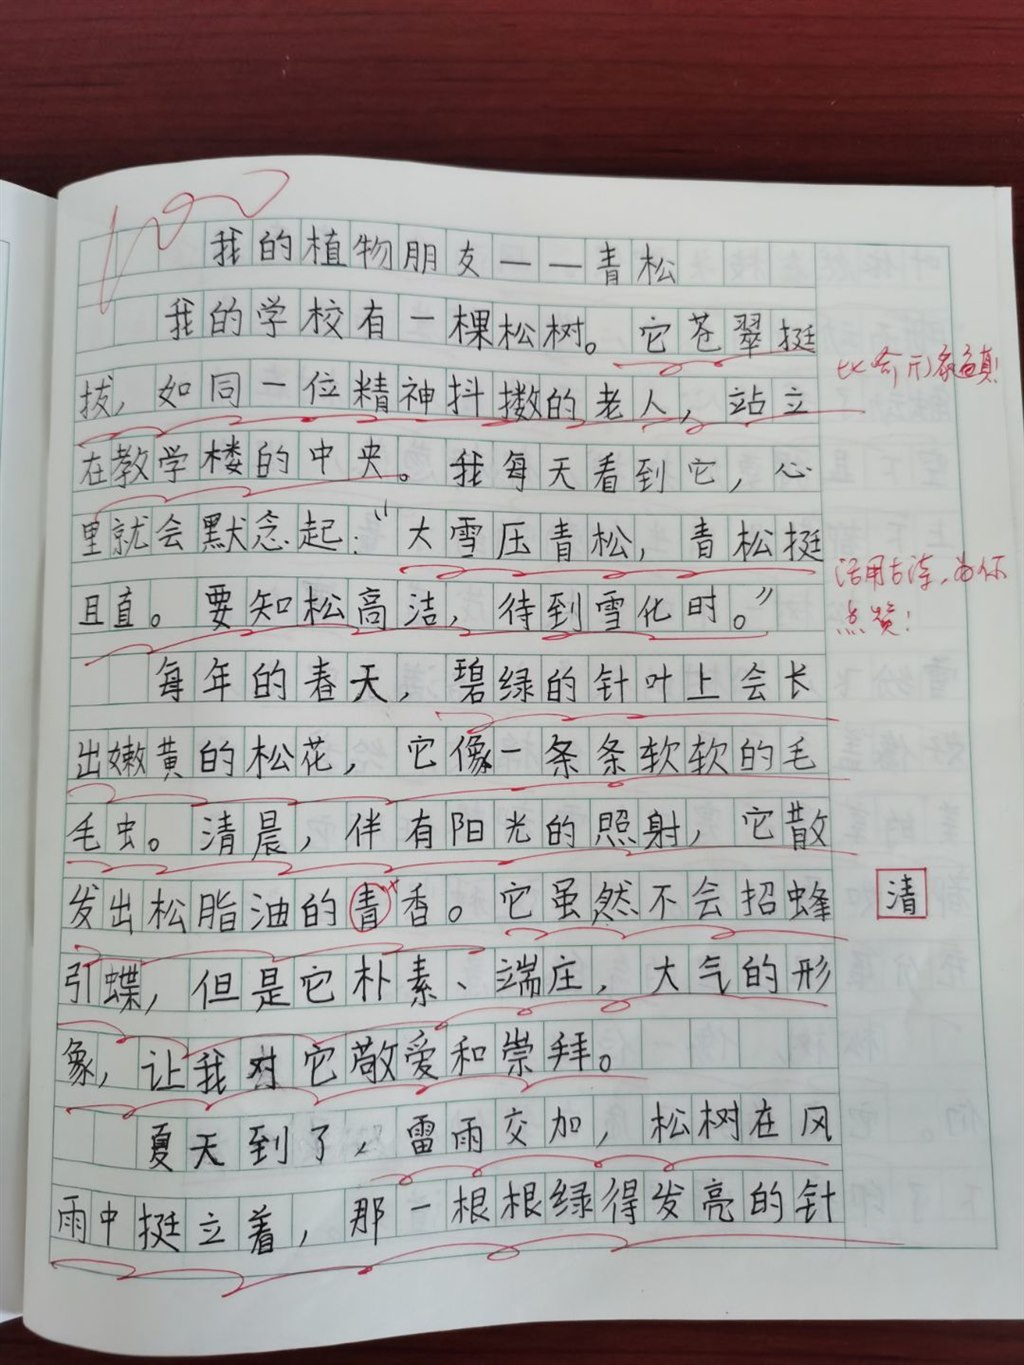 100
我的植物朋友——青松
我的学校有一棵松树。它苍翠挺
拔，如同一位精神抖擞的老人，站立
在教学楼的中央。我每天看到它，心
里就会默念起：“大雪压青松，青松挺
且直。要知松高洁，待到雪化时。”
每年的春天，碧绿的针叶上会长
出嫩黄的松花，它像一条条软软的毛
毛虫。清晨，伴有阳光的照射，它散
发出松脂油的青香。它虽然不会招蜂
引蝶，但是它朴素、端庄，大气的形
象，让我对它敬爱和崇拜。
夏天到了，雷雨交加，松树在风
雨中挺立着，那一根根绿得发亮的针
比喻形象逼真！
活用古诗，为你
点赞！
清